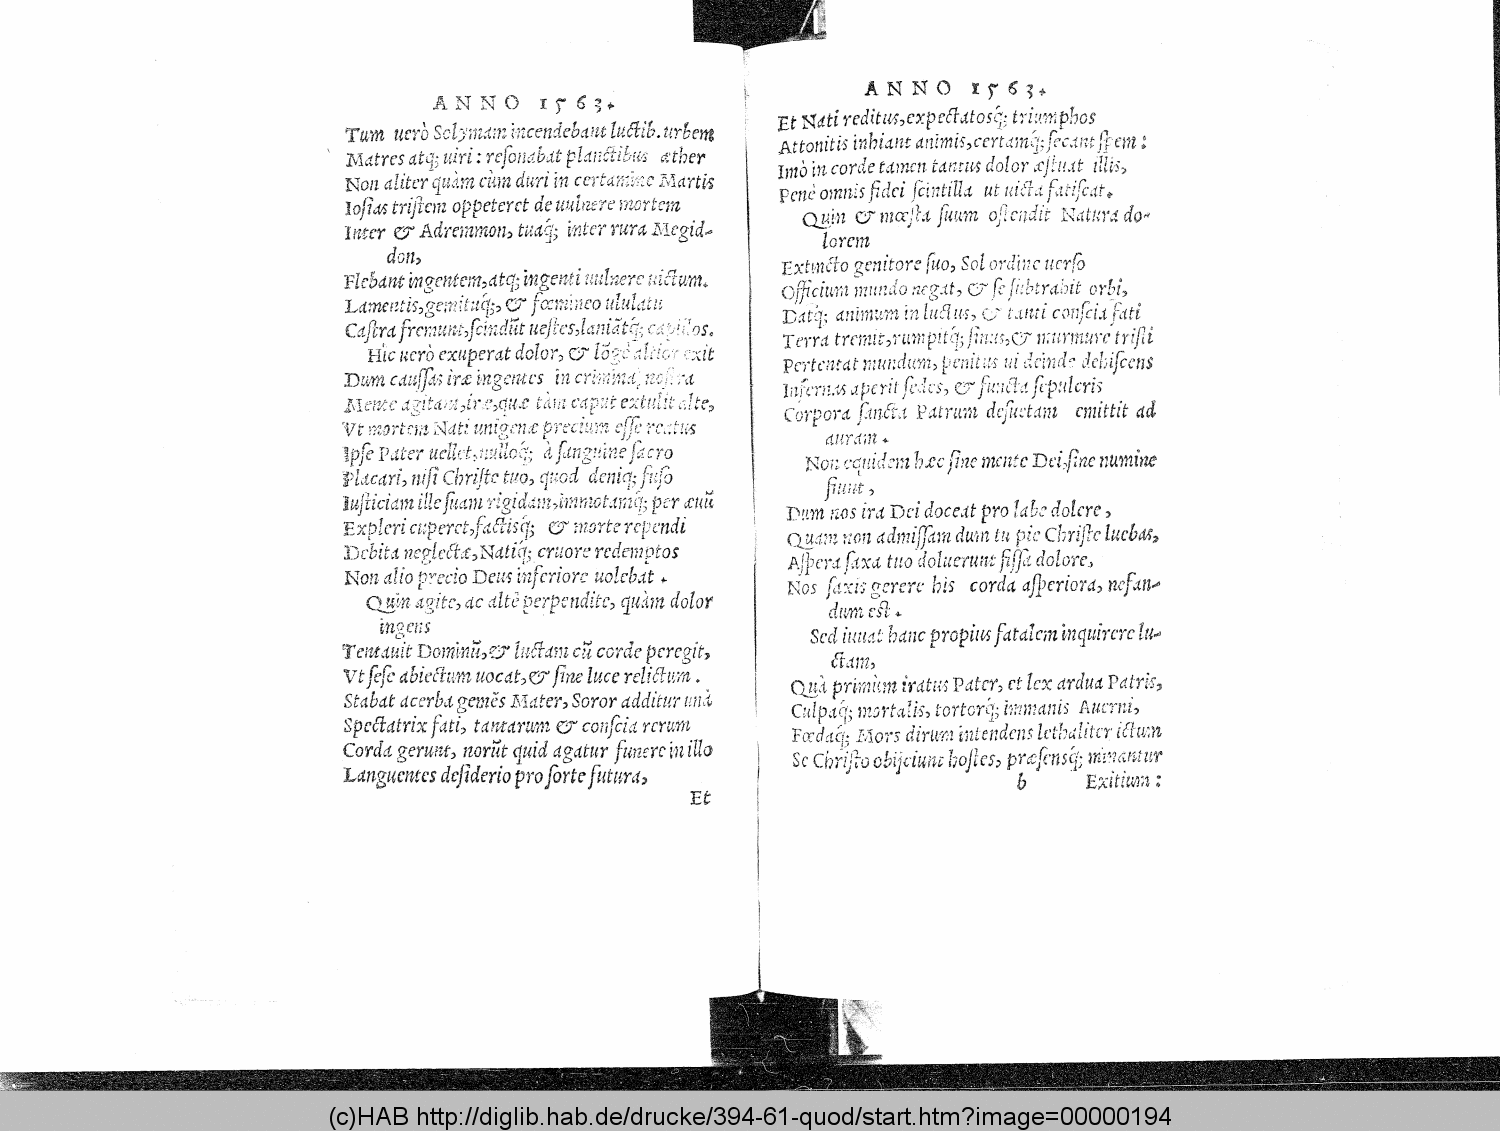 ANNO 1563.
Tum uerò Solymam incendebant luctib. urbem
Matres atq; uiri: reſonabat planctibus æther
Non aliter quàm cùm duri in certamine Martis
Ioſias triſtem oppeteret de uulnere mortem
Inter & Adremmon, tuaq́; inter rura Megid-
don,
Flebant ingentem, atq; ingenti uulnere uictum.
Lamentis, gemituq́;, & fœmineo ululatu
Caſtra fremunt, ſcindūt ueſtes, laniātq́; capillos.
Hic uerò exuperat dolor, & lōgè altior exit
Dum cauſſas iræ ingentes in crimina noſtra
Mente agitant, iræ, quæ tàm caput extulit alte,
Vt mortem Nati unigenæ precium eſſe reatus
Ipſe Pater uellet, nulloq́; à ſanguine ſacro
Placari, niſi Chriſte tuo, quod deniq; fuſo
Iuſticiam ille ſuam rigidam, immotamq́; per æuū
Expleri cuperet, factisq́; & morte rependi
Debita neglectæ, Natiq́; cruore redemptos
Non alio precio Deus inferiore uolebat.
Quin agite, ac altè perpendite, quàm dolor
ingens
Tentauit Dominū, & luctam cū corde peregit,
Vt ſeſe abiectum uocat, & ſine luce relictum.
Stabat acerba gemēs Mater, Soror additur unà
Spectatrix fati, tantarum & conſcia rerum
Corda gerunt, norūt quid agatur funere in illo
Languentes deſiderio pro ſorte futura,
Et
ANNO 1563.
Et Nati reditus, expectatosq́; triumphos
Attonitis inhiant animis, certamq́; ſecant ſpem:
Imò in corde tamen tantus dolor æſtuat illis,
Penè omnis fidei ſcintilla ut uicta fatiſcat.
Quin & mœſta ſuum oſtendit Natura do-
lorem
Extincto genitore ſuo, Sol ordine uerſo
Officium mundo negat, & ſe ſubtrahit orbi,
Datq́; animum in luctus, & tanti conſcia fati
Terra tremit, rumpitq́; ſinus, & murmure triſti
Pertentat mundum, penitus ui deinde dehiſcens
Infernas aperit ſedes, & functa ſepulcris
Corpora ſancta Patrum deſuetam emittit ad
auram.
Non equidem hæc ſine mente Dei, ſine numine
fiunt,
Dum nos ira Dei doceat pro labe dolere,
Quam non admiſſam dum tu pie Chriſte luebas,
Aſpera ſaxa tuo doluerunt fiſſa dolore,
Nos ſaxis gerere his corda aſperiora, nefan-
dum eſt.
Sed iuuat hanc propius fatalem inquirere lu-
ctam,
Quà primùm iratus Pater, et lex ardua Patris,
Culpaq́; mortalis, tortorq́; immanis Auerni,
Fœdaq́; Mors dirum intendens lethaliter ictum
Se Chriſto obijciunt hoſtes, præſensq́; minantur
b Exitium:
(c)HAB http://diglib.hab.de/drucke/394-61-quod/start.htm?image=00000194